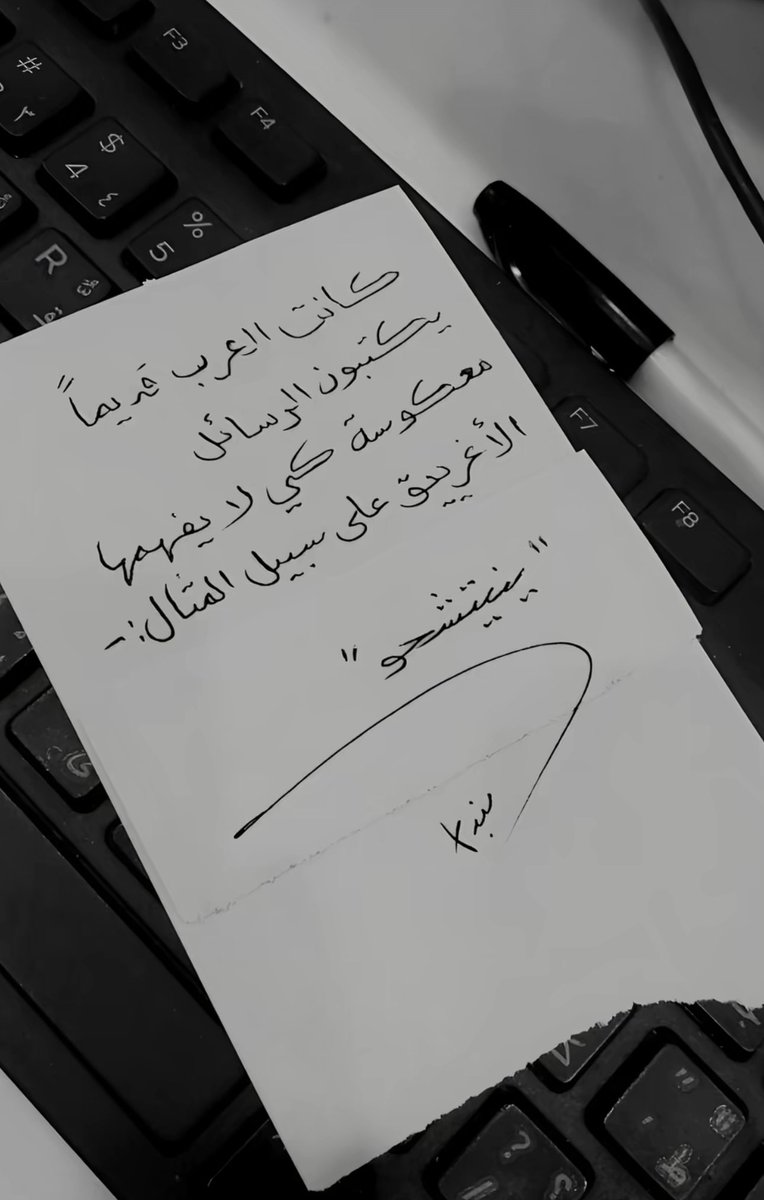 F3
F4
#
$
4 ٤
%
5
R
كانت العرب قديماً
يكتبون الرسائل
معكوسة كي لا يفهمها
الأغريق على سبيل المثال:-
"ينيتشحو"
F7
F8